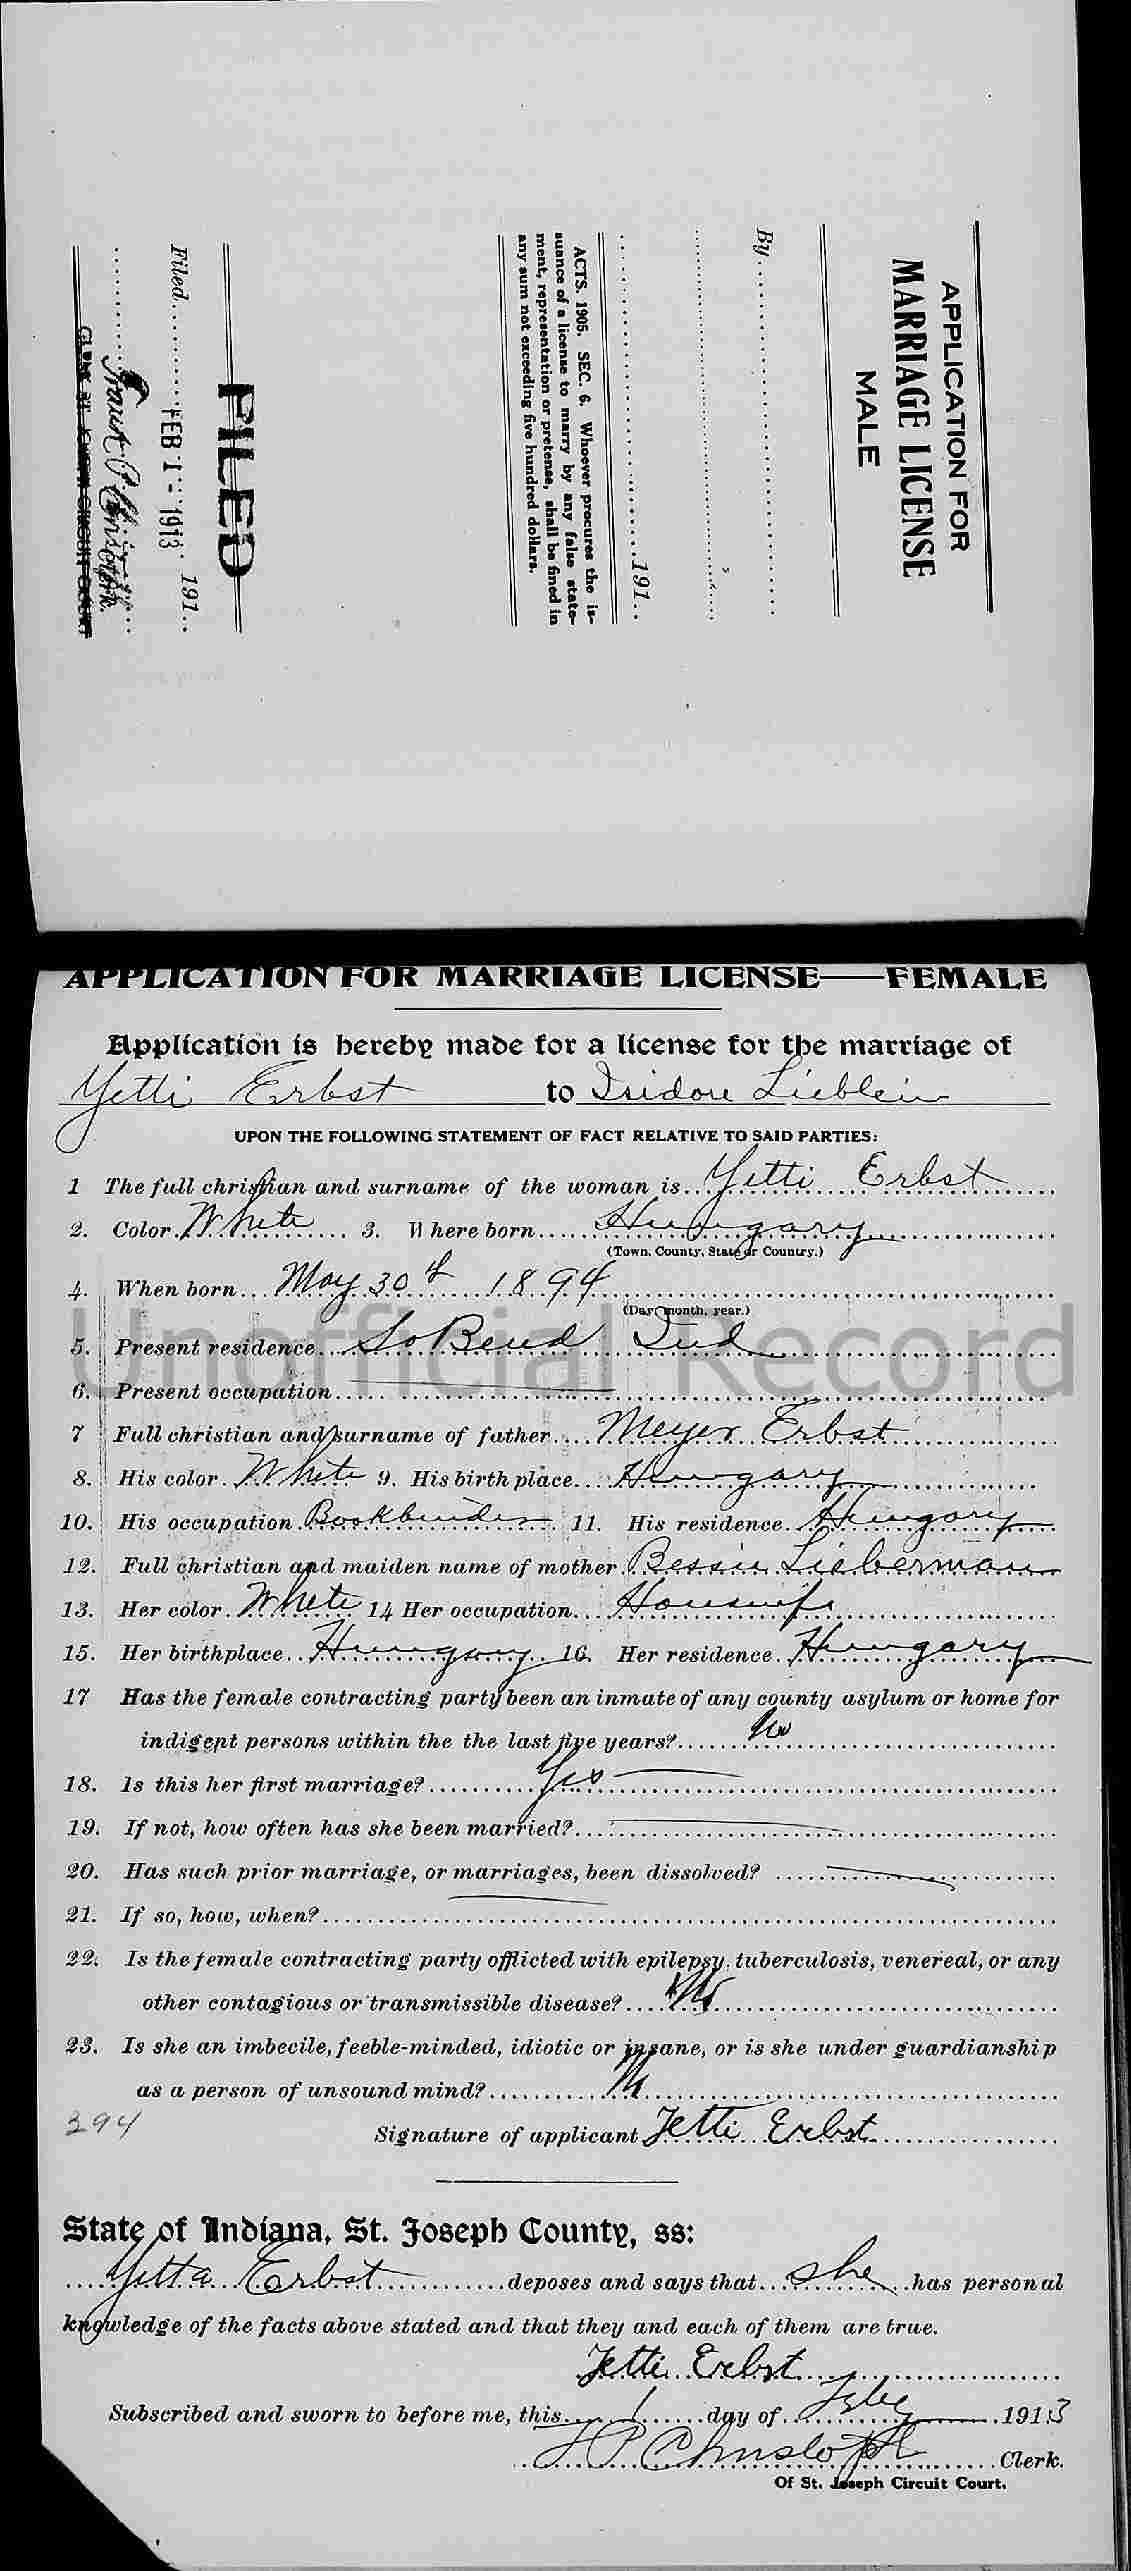 APPLICATION FOR
MARRIAGE LICENSE
MALE
By
191
ACTS. 1905. SEC. 6. Whoever procures the is-
suance of a license to marry by any false state-
ment, representation or pretense, shall be fined in
any sum not exceeding five hundred dollars.
FILED
Filed FEB 1 - 1913 191
Frank P. Christoph
Clerk.
CLERK ST. JOSEPH CIRCUIT COURT
APPLICATION FOR MARRIAGE LICENSE—FEMALE
Application is hereby made for a license for the marriage of
Yetti Erbst to Isidore Lieblein
UPON THE FOLLOWING STATEMENT OF FACT RELATIVE TO SAID PARTIES:
1 The full christian and surname of the woman is Yetti Erbst
2. Color White 3. Where born Hungary
(Town, County, State or Country.)
4. When born May 30th 1894
(Day, month, year.)
Unofficial Record
5. Present residence So Bend Ind
6. Present occupation
7 Full christian and surname of father Meyer Erbst
8. His color White 9. His birthplace Hungary
10. His occupation Bookbinder 11. His residence Hungary
12. Full christian and maiden name of mother Bessie Lieberman
13. Her color White 14 Her occupation Housewife
15. Her birthplace Hungary 16. Her residence Hungary
17 Has the female contracting party been an inmate of any county asylum or home for
indigent persons within the the last five years? No
18. Is this her first marriage? Yes
19. If not, how often has she been married?
20. Has such prior marriage, or marriages, been dissolved?
21. If so, how, when?
22. Is the female contracting party offlicted with epilepsy, tuberculosis, venereal, or any
other contagious or transmissible disease? No
23. Is she an imbecile, feeble-minded, idiotic or insane, or is she under guardianship
as a person of unsound mind? No
394
Signature of applicant Jetti Erbst
State of Indiana, St. Joseph County, ss:
Yetta Erbst deposes and says that she has personal
knowledge of the facts above stated and that they and each of them are true.
Jetti Erbst
Subscribed and sworn to before me, this 1 day of Feby 1913
F P Christoph Clerk.
Of St. Joseph Circuit Court.